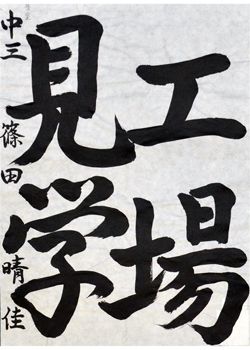 工場
見学
中三 篠田晴佳